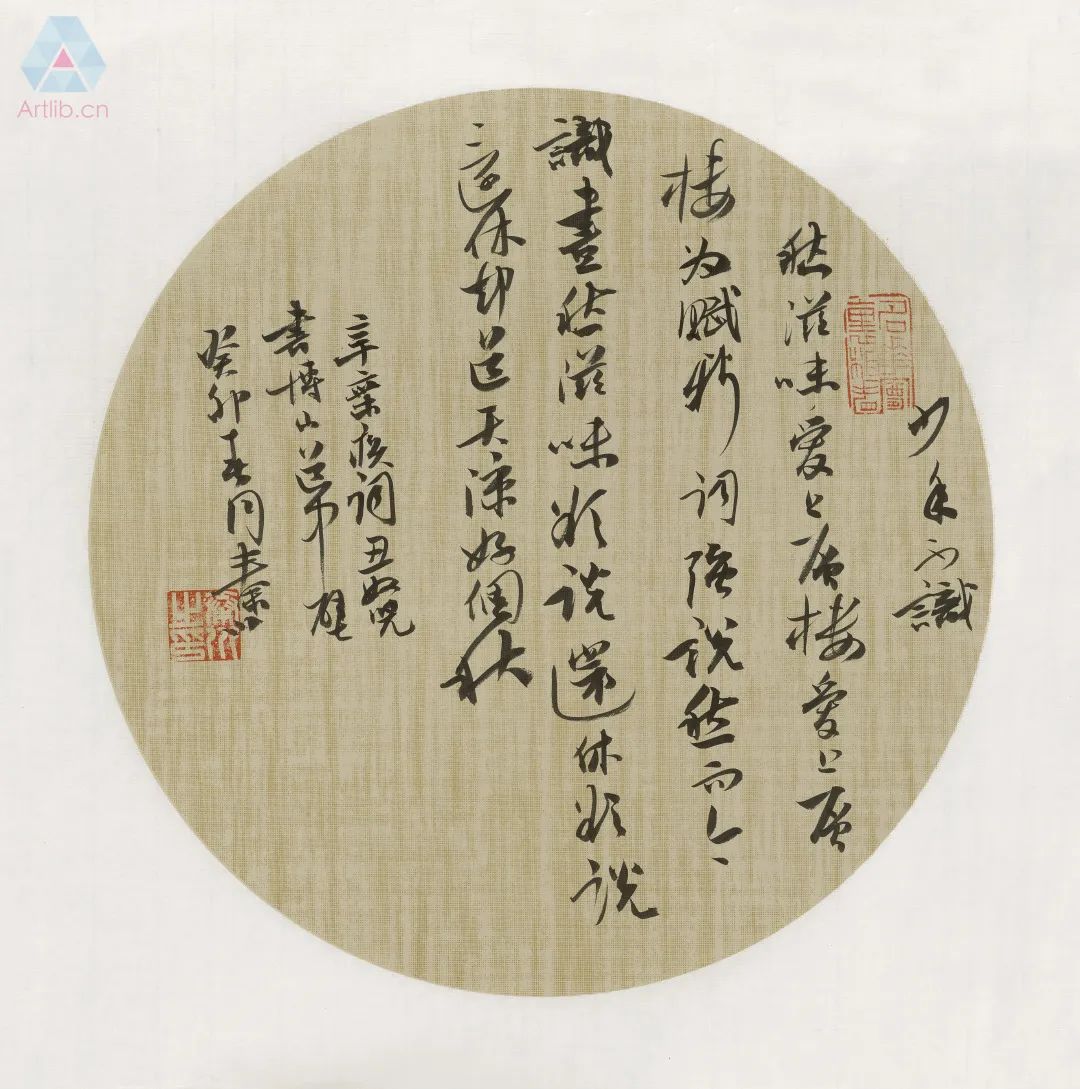 Artlib.cn
少年不識
愁滋味愛上層樓愛上層
樓为賦新詞強說愁而今
識盡愁滋味欲說還休欲說
還休却道天涼好個秋
辛棄疾詞丑奴兒
書博山道中壁
癸卯春